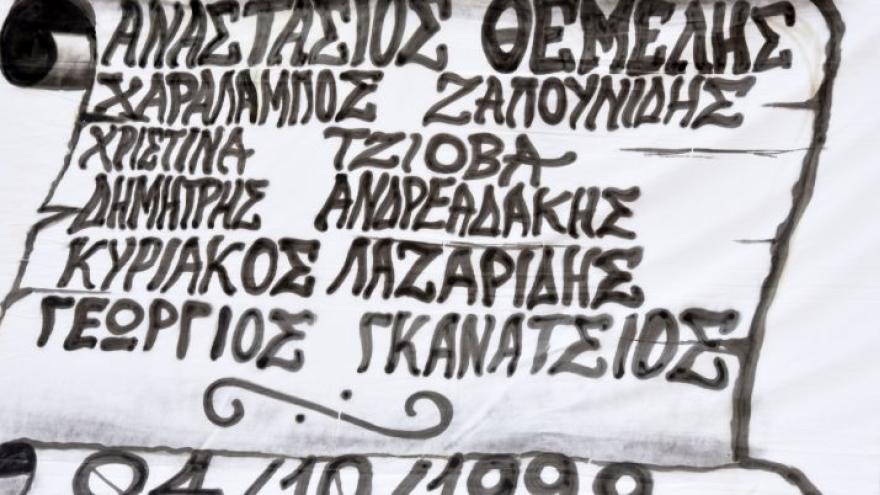 ΑΝΑΣΤΑΣΙΟΣ ΘΕΜΕΛΗΣ
ΧΑΡΑΛΑΜΠΟΣ ΖΑΠΟΥΝΙΔΗΣ
ΧΡΙΣΤΙΝΑ ΤΖΙΟΒΑ
ΔΗΜΗΤΡΗΣ ΑΝΔΡΕΑΔΑΚΗΣ
ΚΥΡΙΑΚΟΣ ΛΑΖΑΡΙΔΗΣ
ΓΕΩΡΓΙΟΣ ΓΚΑΝΑΤΣΙΟΣ
04/10/1999